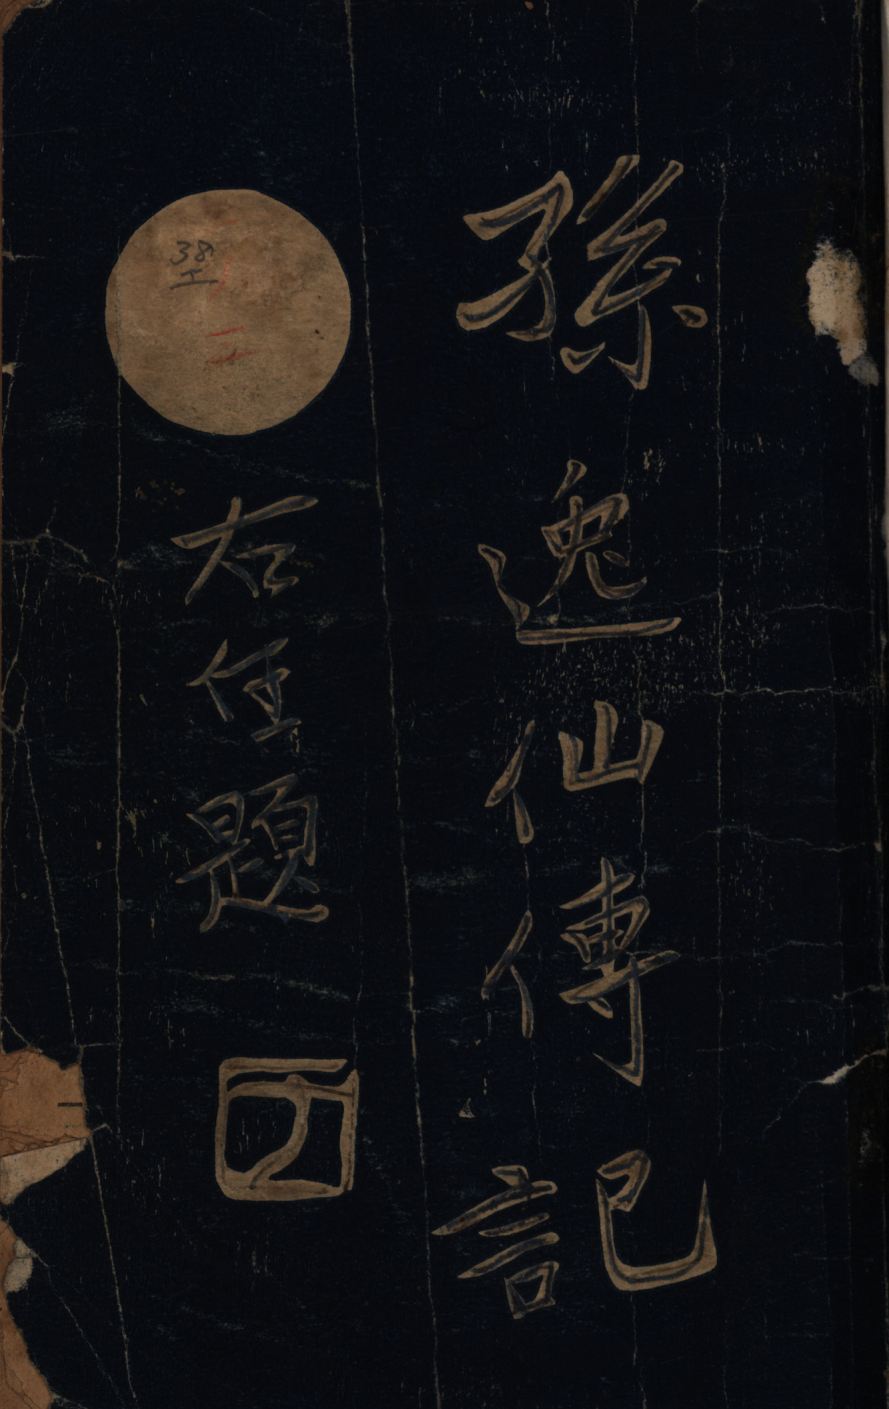 孫逸仙傳記
右任題
38